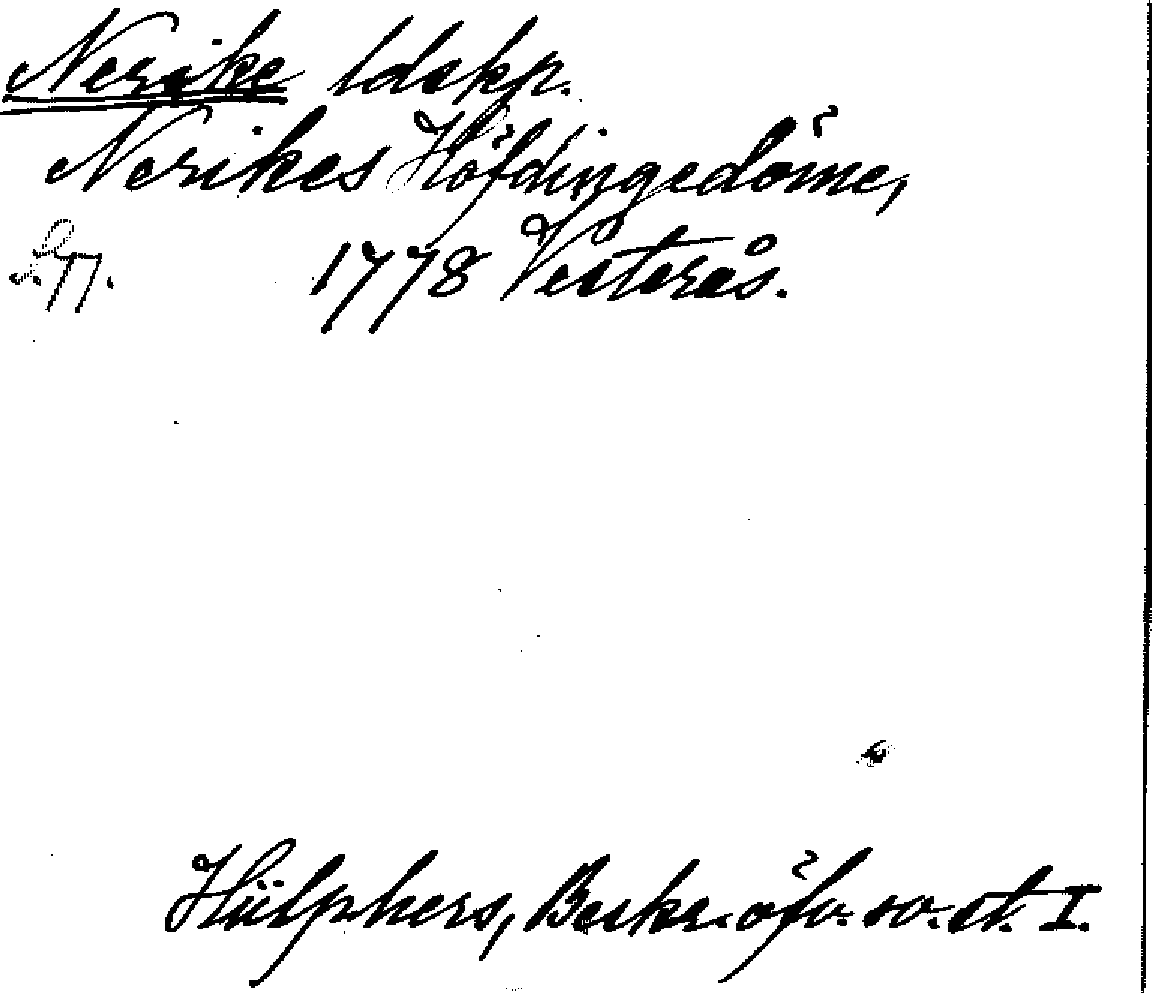 Nerike ldskp.
Nerikes Höfdingedöme,
1778 Vesterås.
Hülphers, Beskr. öfv. sv. st. I.